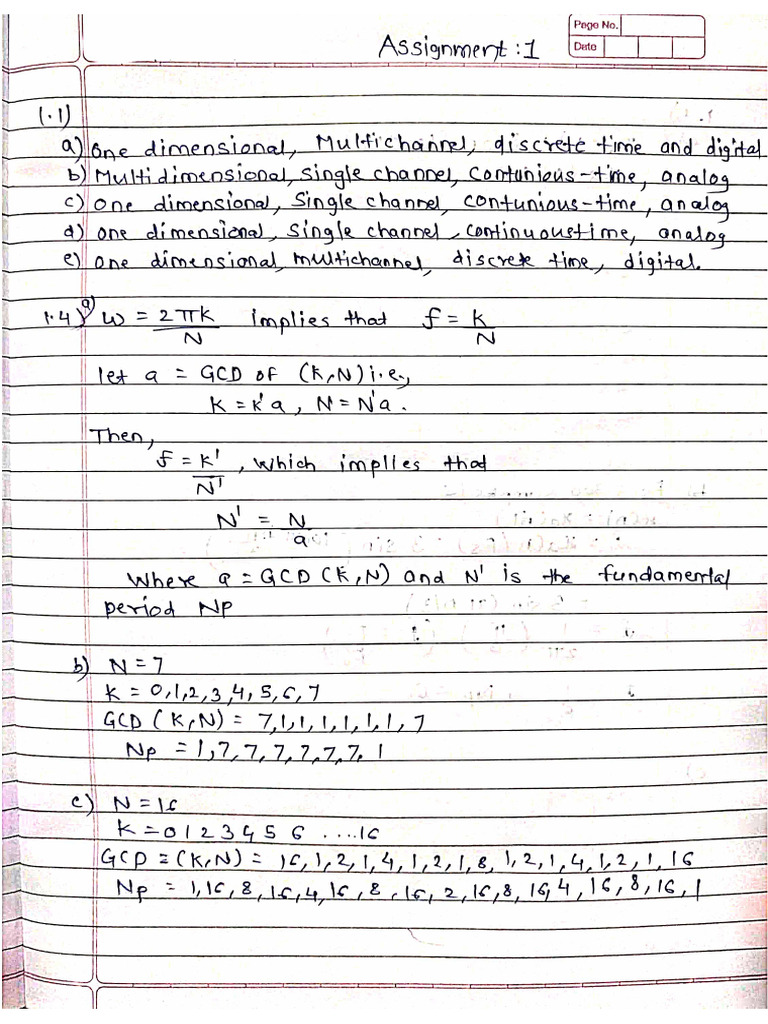 Page No.
Date
Assignment : 1
1.1)
a) One dimensional, Multichannel, discrete time and digital
b) Multidimensional, single channel, Contunious-time, analog
c) One dimensional, Single channel, contunious-time, analog
d) One dimensional, Single channel, continuoustime, analog
e) One dimensional, multichannel, discrete time, digital.
1.4) a) ω = 2πk/N implies that f = k/N
let a = GCD of (k,N) i.e.,
K = k'a, N = N'a.
Then,
f = k'/N', which implies that
N' = N/a
Where a = GCD (k,N) and N' is the fundamental
period Np
b) N = 7
K = 0,1,2,3,4,5,6,7
GCD (K,N) = 7,1,1,1,1,1,1,7
Np = 1,7,7,7,7,7,7,1
c) N = 16
K = 0 1 2 3 4 5 6 ....16
GCD = (K,N) = 16,1,2,1,4,1,2,1,8,1,2,1,4,1,2,1,16
Np = 1,16,8,16,4,16,8,16,2,16,8,16,4,16,8,16,1